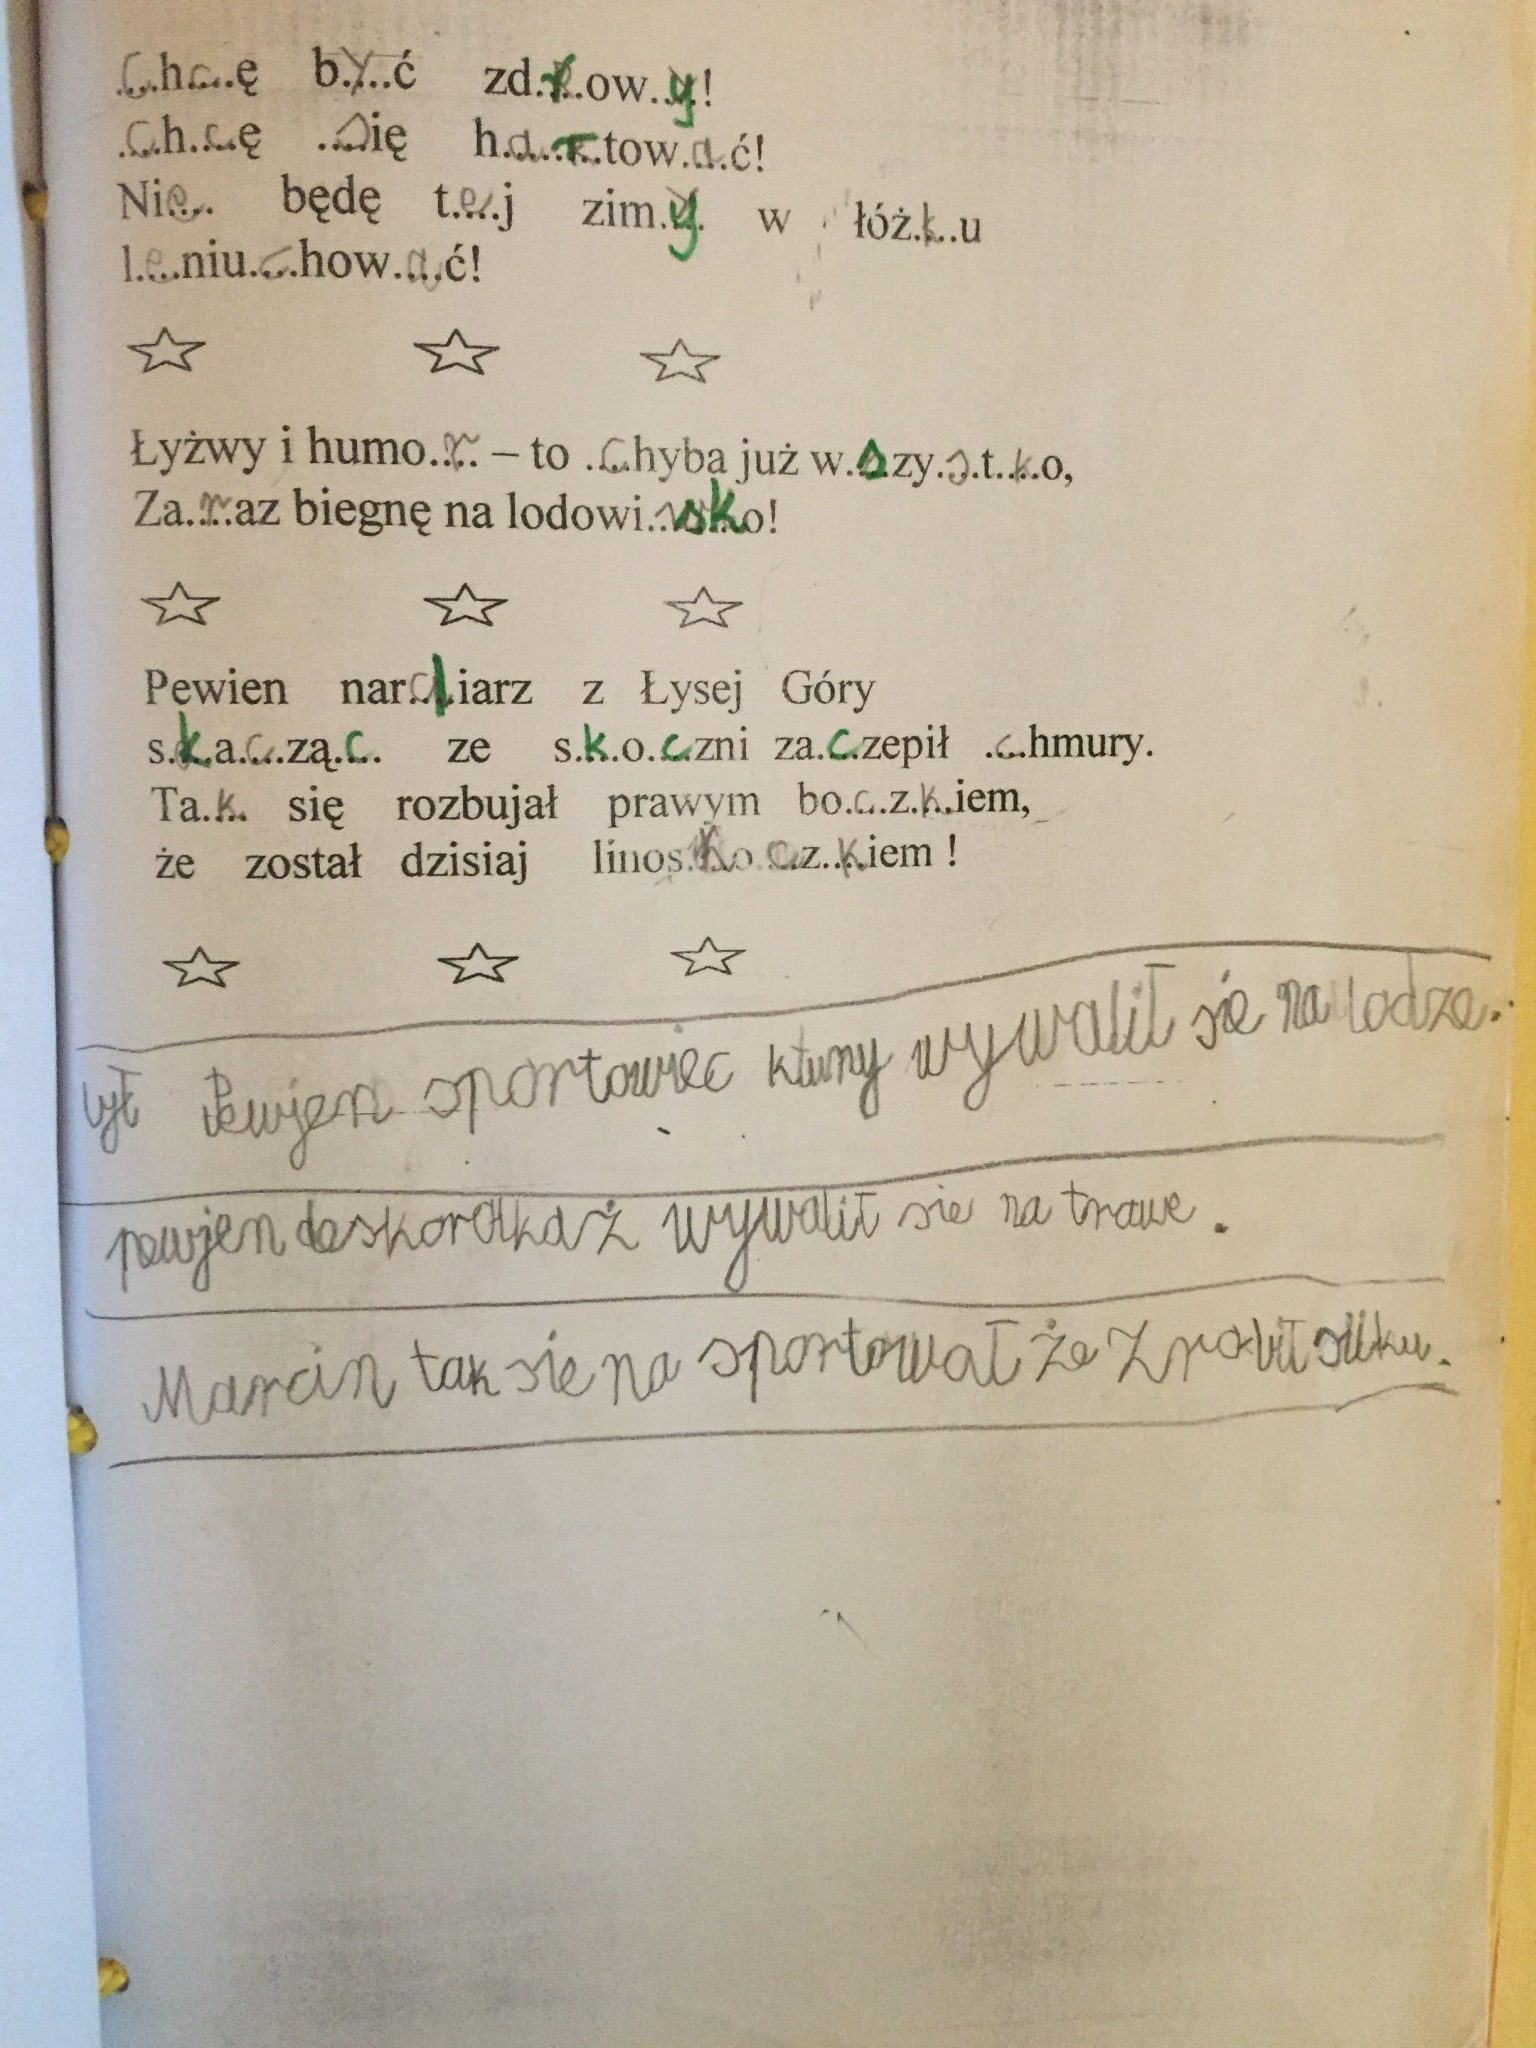 Chcę być zdrowy!
Chcę się hartować!
Nie będę tej zimy w łóżku
leniuchować!
Łyżwy i humor – to chyba już wszystko,
Zaraz biegnę na lodowisko!
Pewien narciarz z Łysej Góry
skacząc ze skoczni zaczepił chmury.
Tak się rozbujał prawym boczkiem,
że został dzisiaj linoskoczkiem !
był Pewjen sportowiec ktury wywalił sie na lodze.
pewjen deskorolkaż wywalił sie na trawe.
Marcin tak sie na sportował że zrobił siłku.